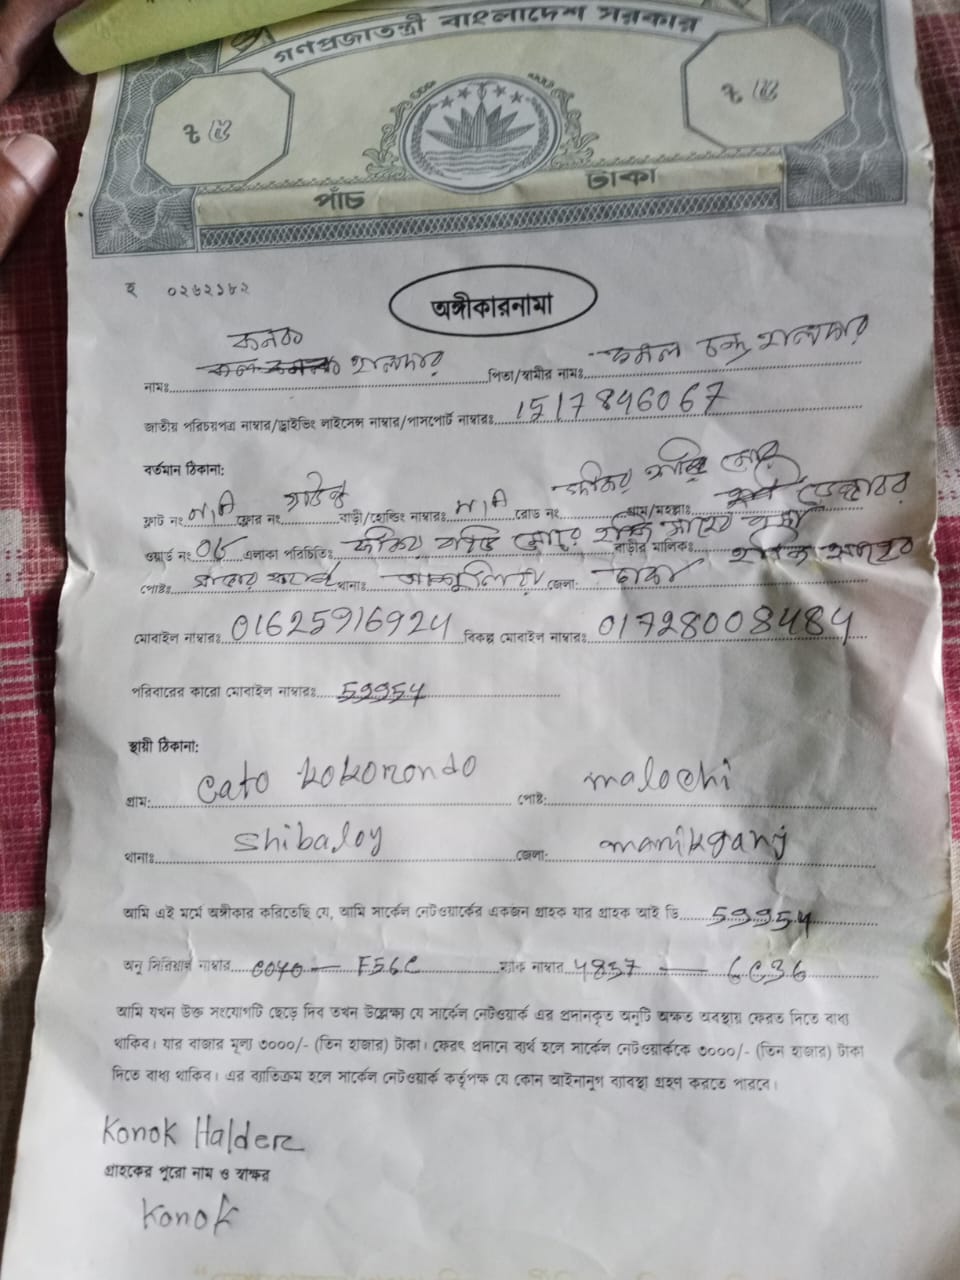 গণপ্রজাতন্ত্রী বাংলাদেশ সরকার
৳ ৫ ৳ ৫
পাঁচ টাকা
হ ০২৬২১৮২
অঙ্গীকারনামা
কনক
নামঃ হালদার পিতা/স্বামীর নামঃ কমল চন্দ্র হালদার
জাতীয় পরিচয়পত্র নাম্বার/ড্রাইভিং লাইসেন্স নাম্বার/পাসপোর্ট নাম্বারঃ 1517846067
বর্তমান ঠিকানা:
ফ্লাট নং N/A ফ্লোর নং বাড়ী/হোল্ডিং নাম্বারঃ N/A রোড নং গ্রাম/মহল্লাঃ
ওয়ার্ড নং 05 এলাকা পরিচিতিঃ বাড়ীর মালিকঃ
পোষ্টঃ থানাঃ জেলা: ঢাকা
মোবাইল নাম্বারঃ 01625916924 বিকল্প মোবাইল নাম্বারঃ 01728008484
পরিবারের কারো মোবাইল নাম্বারঃ 59954
স্থায়ী ঠিকানা:
গ্রাম: cato kokorondo পোষ্ট: malochi
থানাঃ Shibaloy জেলা: manikganj
আমি এই মর্মে অঙ্গীকার করিতেছি যে, আমি সার্কেল নেটওয়ার্কের একজন গ্রাহক যার গ্রাহক আই ডি 59954
অনু সিরিয়াল নাম্বার F56C ম্যাক নাম্বার 4837 — 6C36
আমি যখন উক্ত সংযোগটি ছেড়ে দিব তখন উল্লেক্ষ্য যে সার্কেল নেটওয়ার্ক এর প্রদানকৃত অনুটি অক্ষত অবস্থায় ফেরত দিতে বাধ্য
থাকিব। যার বাজার মূল্য ৩০০০/- (তিন হাজার) টাকা। ফেরৎ প্রদানে ব্যর্থ হলে সার্কেল নেটওয়ার্ককে ৩০০০/- (তিন হাজার) টাকা
দিতে বাধ্য থাকিব। এর ব্যতিক্রম হলে সার্কেল নেটওয়ার্ক কর্তৃপক্ষ যে কোন আইনানুগ ব্যবস্থা গ্রহণ করতে পারবে।
Konok Halder
গ্রাহকের পুরো নাম ও স্বাক্ষর
Konok